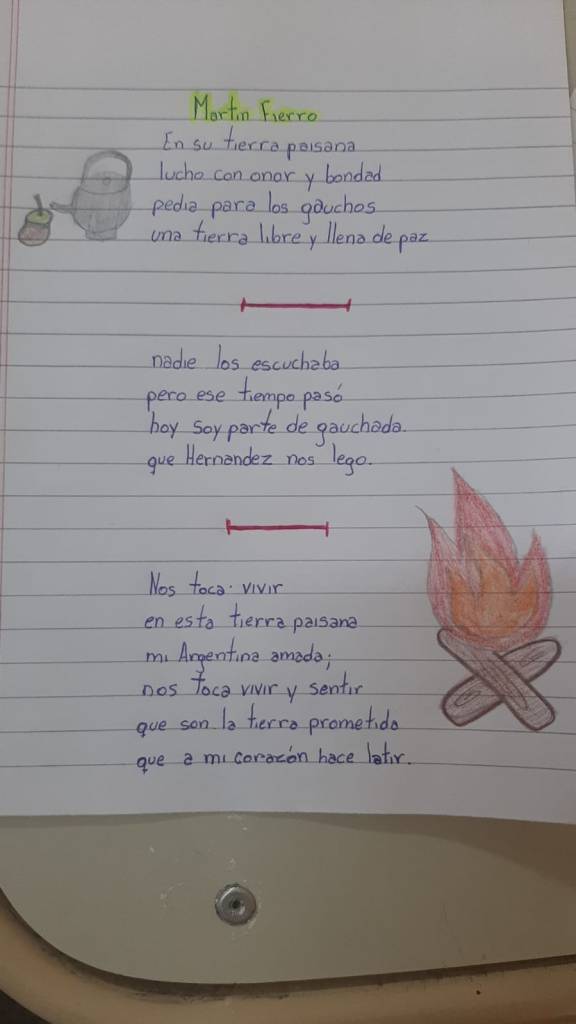 Martin Fierro
En su tierra paisana
lucho con onor y bondad
pedia para los gauchos
una tierra libre y llena de paz
nadie los escuchaba
pero ese tiempo pasó
hoy soy parte de gauchada.
que Hernandez nos lego.
Nos toca vivir
en esta tierra paisana
mi Argentina amada;
nos toca vivir y sentir
que son la tierra prometida
que a mi corazón hace latir.